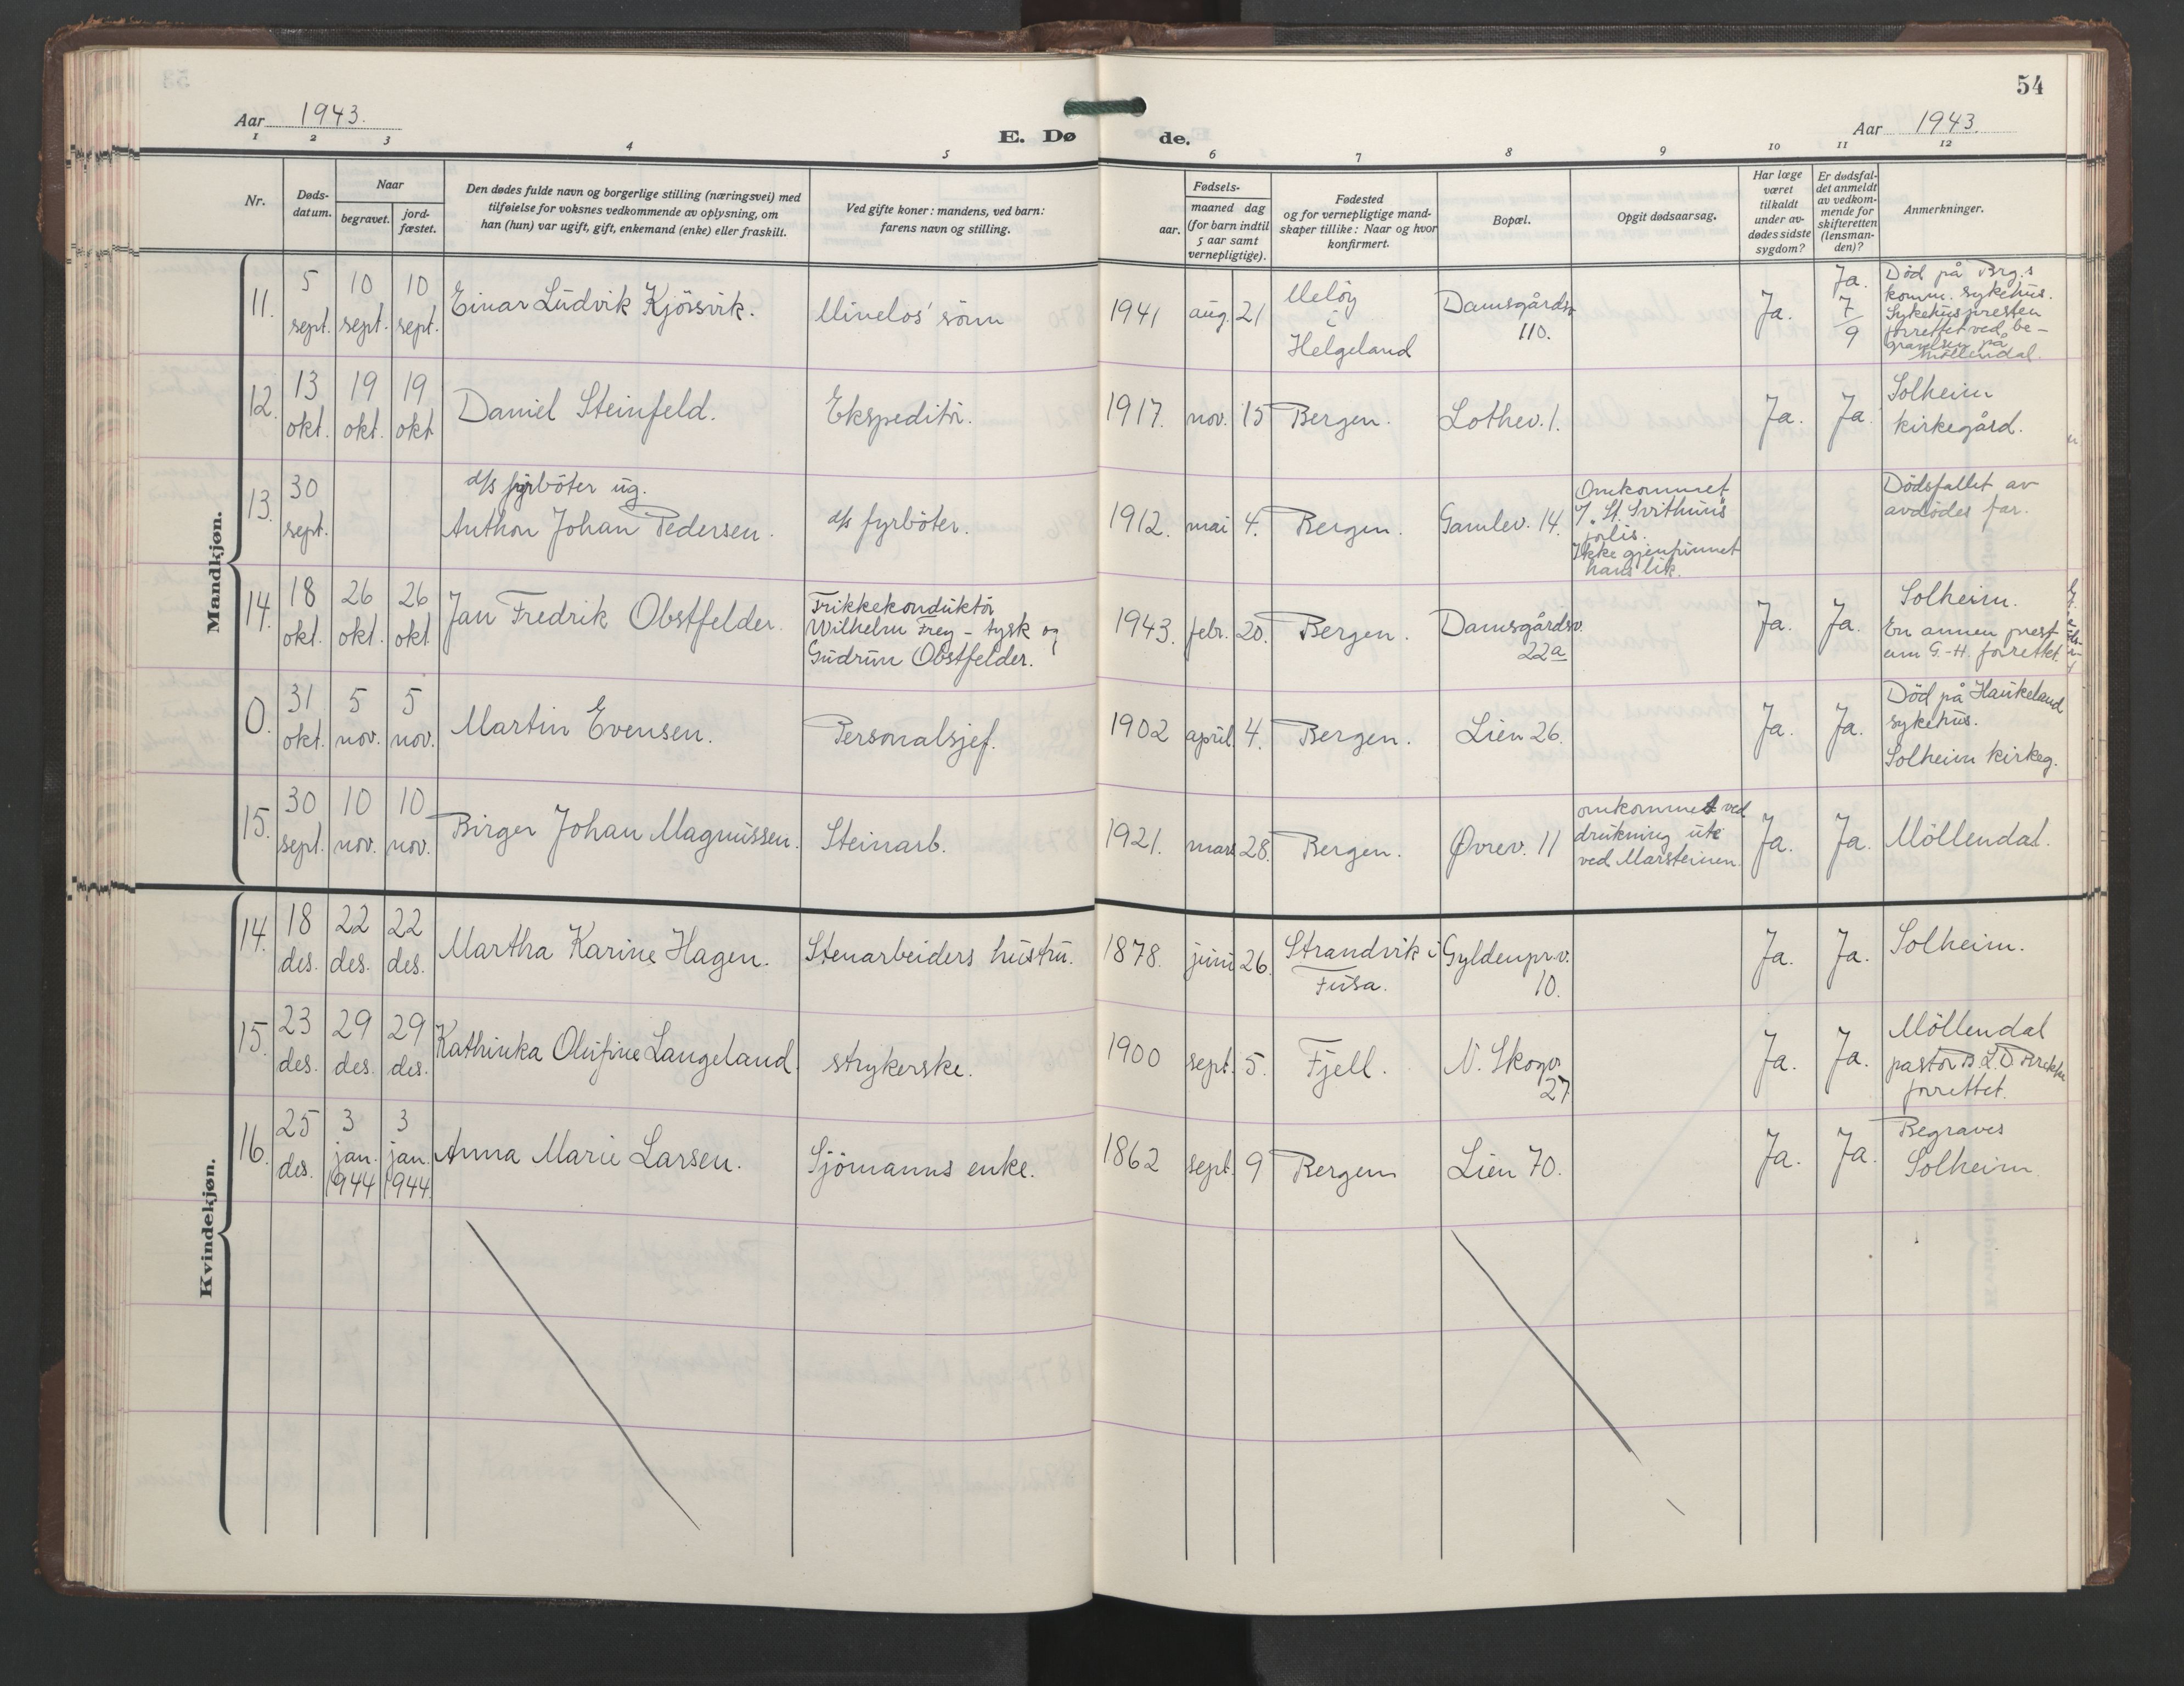 54
Aar 1943.
E. Dø
de.
Aar 1943.
1 2 3 4 5 6 7 8 9 10 11 12
Nr.
Døds-
datum.
Naar
begravet.
jord-
fæstet.
Den dødes fulde navn og borgerlige stilling (næringsvei) med
tilføielse for voksnes vedkommende av oplysning, om
han (hun) var ugift, gift, enkemand (enke) eller fraskilt.
Ved gifte koner: mandens, ved barn:
farens navn og stilling.
Fødsels-
aar.
maaned dag
(for barn indtil
5 aar samt
vernepligtige).
Fødested
og for vernepligtige mand-
skaper tillike: Naar og hvor
konfirmert.
Bopæl.
Opgit dødsaarsag.
Har læge
været
tilkaldt
under av-
dødes sidste
sygdom?
Er dødsfal-
det anmeldt
av vedkom-
mende for
skifteretten
(lensman-
den)?
Anmerkninger.
Mandkjøn.
11.
5
sept.
10
sept.
10
sept.
Einar Ludvik Kjörsvik.
sönn
1941
aug. 21
Melöy
i
Helgeland
Damsgårdsv.
110.
Ja.
Ja.
7
9
Död på Brg.s
komm. sykehus.
Sykehuspresten
forrettet ved be-
gravelsen på
Möllendal.
12.
13
okt.
19
okt.
19
okt
Daniel Steinfeld.
Ekspeditör.
1917.
nov. 15
Bergen.
Lothev. 1.
Ja.
Ja.
Solheim
kirkegård.
13.
30
sept.
d/s fyrböter ug.
Anthon Johan Pedersen.
d/s fyrböter.
1912.
mai 4.
Bergen.
Gamlev. 14.
Omkommet
"St. Svithuns"
forlis.
Ikke gjenfunnet
hans lik.
Dödsfallet av
avdödes far.
14.
18
okt.
26
okt.
26
okt
Jan Fredrik Obstfelder.
Trikkekonduktör
Wilhelm Frey - tysk og
Gudrun Obstfelder.
1943.
febr. 20.
Bergen.
Damsgårdsv.
22a
Ja.
Ja.
Solheim.
En annen prest
enn G.-H. forrettet.
0.
31
okt.
5
nov.
5
nov.
Martin Evensen.
Personalsjef.
1902
april 4.
Bergen.
Lien 26.
Ja.
Ja.
Död på Haukeland
sykehus.
Solheim kirkeg.
15.
30
sept.
10
nov.
10
nov.
Birger Johan Magnussen.
Steinarb.
1921.
mars 28.
Bergen.
Øvrev. 11
omkommet ved
drukning ute
ved Marsteinen.
Ja.
Ja.
Möllendal.
Kvindekjøn.
14.
18
des.
22
des.
22
des.
Martha Karine Hagen.
Stenarbeiders hustru.
1878.
juni 26.
Strandvik i
Fusa.
Gyldenpr.v.
10.
Ja.
Ja.
Solheim.
15.
23
des.
29
des.
29
des.
Kathinka Olufine Langeland.
strykerske.
1900
sept. 5.
Fjell.
N. Skogv.
27.
Ja.
Ja.
Möllendal
pastor
forrettet.
16.
25
des.
3
jan.
1944
3
jan.
1944.
Anna Marie Larsen.
Sjömanns enke.
1862
sept. 9
Bergen
Lien 70.
Ja.
Ja.
Begraves
Solheim